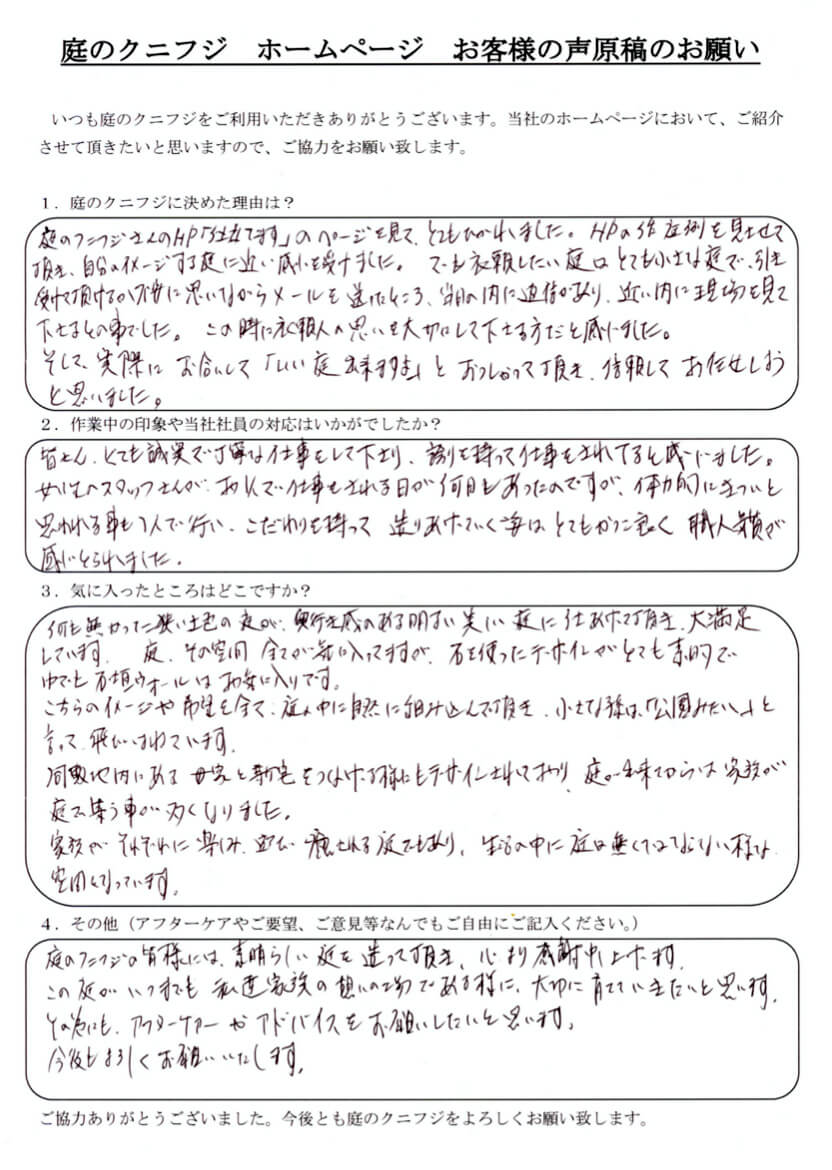 庭のクニフジ　ホームページ　お客様の声原稿のお願い
いつも庭のクニフジをご利用いただきありがとうございます。当社のホームページにおいて、ご紹介
させて頂きたいと思いますので、ご協力をお願い致します。
１．庭のクニフジに決めた理由は？
庭のクニフジさんのHP「仕立てます」のページを見て、とてもひかれました。HPの作庭例を見させて
頂き、自分のイメージする庭に近い感じを受けました。でも依頼したい庭はとても小さな庭で、引き
受けて頂けるか不安に思いながらメールを送ったところ、当日の内に返信があり、近い内に現場を見て
下さるとの事でした。この時に依頼人の思いを大切にして下さる方だと感じました。
そして、実際にお会いして「いい庭出来ますよ」とおっしゃって頂き、信頼してお任せしよう
と思いました。
２．作業中の印象や当社社員の対応はいかがでしたか？
皆さん、とても誠実で丁寧な仕事をして下さり、誇りを持って仕事をされてると感じました。
女性のスタッフさんが、お1人で仕事をされる日が何日もあったのですが、体力的にきついと
思われる事も1人で行い、こだわりを持って造りあげていく姿はとてもかっこ良く職人気質が
感じとられました。
３．気に入ったところはどこですか？
何も無かった狭い土色の庭が、奥行き感のある明るい美しい庭に仕あげて頂き、大満足
しています。庭、その空間全てが気に入ってますが、石を使ったデザインがとても素的で
中でも石垣ウォールはお気に入りです。
こちらのイメージや希望を全て、庭の中に自然に組み込んで頂き、小さな孫は、「公園みたい」と
言って、飛びはねています。
同敷地内にある母家と新宅をつなげる様にもデザインされており、庭が出来てからは家族が
庭で集う事が多くなりました。
家族がそれぞれに楽しみ、又、癒される庭でもあり、生活の中に庭は無くてはならない様な
空間となっています。
４．その他（アフターケアやご要望、ご意見等なんでもご自由にご記入ください。）
庭のクニフジの皆様には、素晴らしい庭を造って頂き、心より感謝申し上げます。
この庭がいつまでも私達家族の憩いの場である様に、大切に育てていきたいと思います。
その為にも、アフターケアーやアドバイスをお願いしたいと思います。
今後もよろしくお願いいたします。
ご協力ありがとうございました。今後とも庭のクニフジをよろしくお願い致します。